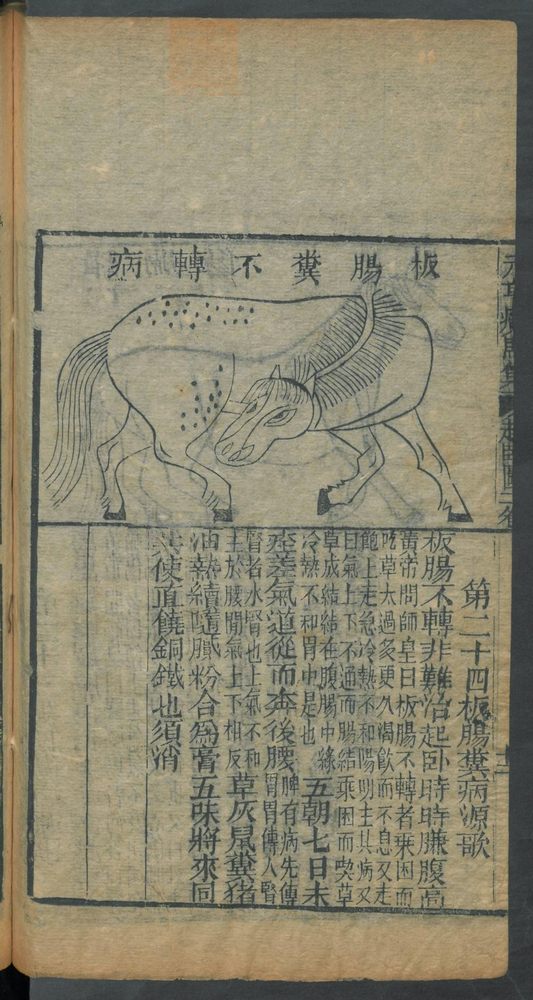 板腸糞不轉病
第二十四板腸糞病源歌
板腸不轉非難治起卧時時賺腹高
黄帝問師皇曰板腸不轉者乘困而
吃草太過多更久渴飲而不息又走
飽上走急冷熱不和陽明主其病又
曰氣上下不通而腸結乘困而喫草
草成結結在腹腸中緣
冷熱不和胃中是也
五朝七日未
痊差氣道從而奔後腰
脾有病先傳
胃胃傳入腎
腎者水腎也上氣不和
主於腰間氣上下相反
草灰鼠糞猪
油熱續隨膩粉合為膏五味將來同
共使直饒銅鐵也須消